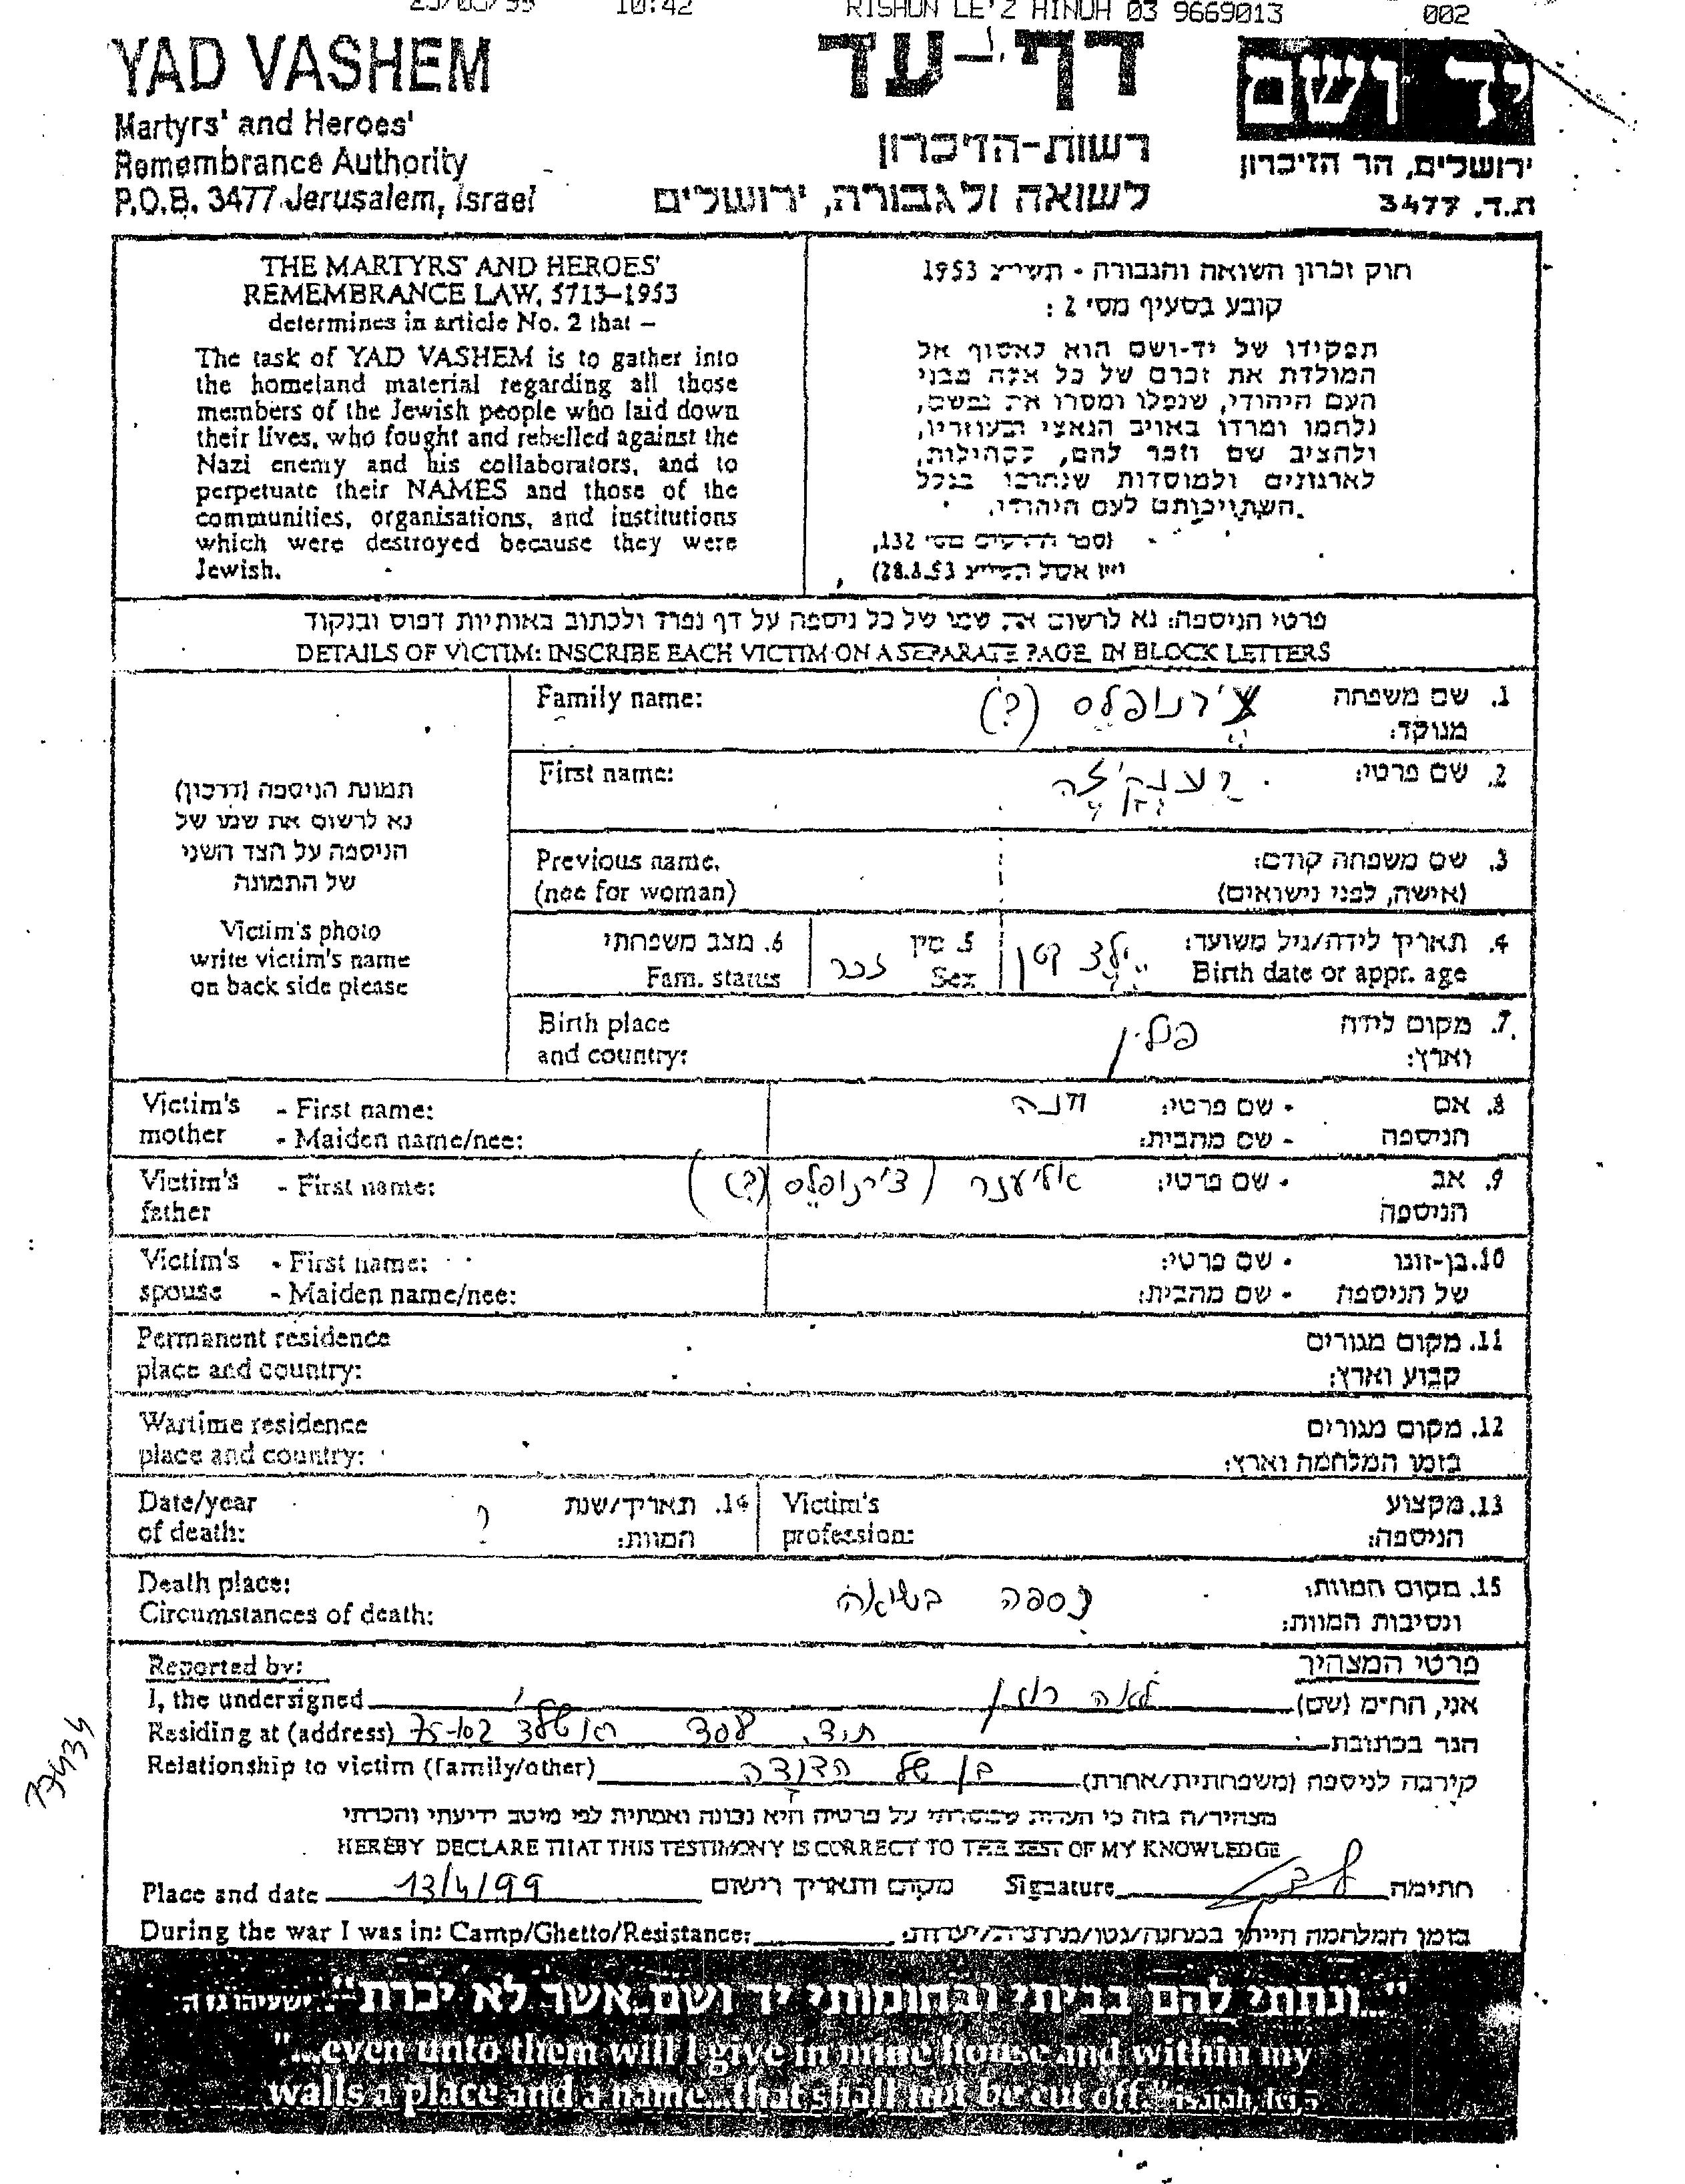 10:42 RISHON LE'Z HINUH 03 9669013 002
YAD VASHEM
Martyrs' and Heroes'
Remembrance Authority
P.O.B. 3477 Jerusalem, Israel
דף-עד
רשות-הזיכרון
לשואה ולגבורה, ירושלים
יד ושם
ירושלים, הר הזיכרון
ת.ד. 3477
THE MARTYRS' AND HEROES'
REMEMBRANCE LAW, 5713–1953
determines in article No. 2 that –
The task of YAD VASHEM is to gather into
the homeland material regarding all those
members of the Jewish people who laid down
their lives, who fought and rebelled against the
Nazi enemy and his collaborators, and to
perpetuate their NAMES and those of the
communities, organisations, and institutions
which were destroyed because they were
Jewish.
חוק זכרון השואה והגבורה - תשי״ג 1953
קובע בסעיף מס׳ 2 :
תפקידו של יד-ושם הוא לאסוף אל
המולדת את זכרם של כל אלה מבני
העם היהודי, שנפלו ומסרו את נפשם,
נלחמו ומרדו באויב הנאצי ובעוזריו,
ולהציב שם וזכר להם, לקהילות,
לארגונים ולמוסדות שנחרבו בגלל
השתייכותם לעם היהודי.
(ספר החוקים מס׳ 132,
28.8.53)
פרטי הניספה: נא לרשום את שמו של כל ניספה על דף נפרד ולכתוב באותיות דפוס ובנקוד
DETAILS OF VICTIM: INSCRIBE EACH VICTIM ON A SEPARATE PAGE IN BLOCK LETTERS
תמונת הניספה (דרכון)
נא לרשום את שמו של
הניספה על הצד השני
של התמונה
Victim's photo
write victim's name
on back side please
Family name: צ'רנופלס (?) 1. שם משפחה
מנוקד:
First name: 2. שם פרטי:
Previous name, 3. שם משפחה קודם:
(nee for woman) (אישה, לפני נישואים)
4. תאריך לידה/גיל משוער: ילד קטן 5. מין זכר 6. מצב משפחתי
Birth date or appr. age Sex Fam. status
Birth place פולין 7. מקום לידה
and country: וארץ:
Victim's - First name: חנה - שם פרטי: 8. אם
mother - Maiden name/nee: - שם מהבית: הניספה
Victim's - First name: אליעזר (צ'רנופלס (?)) - שם פרטי: 9. אב
father הניספה
Victim's - First name: - שם פרטי: 10. בן-זוגו
spouse - Maiden name/nee: - שם מהבית: של הניספה
Permanent residence 11. מקום מגורים
place and country: קבוע וארץ:
Wartime residence 12. מקום מגורים
place and country: בזמן המלחמה וארץ:
Date/year ? 14. תאריך/שנת Victim's 13. מקצוע
of death: המוות: profession: הניספה:
Death place: נספה בשואה 15. מקום המוות:
Circumstances of death: ונסיבות המוות:
Reported by: פרטי המצהיר
I, the undersigned לאה רוזן אני, החי״מ (שם)
Residing at (address) 75-102 ת.ד. הגר בכתובת
Relationship to victim (family/other) בן של הדודה קירבה לניספה (משפחתית/אחרת)
מצהיר/ה בזה כי העדות שמסרתי על פרטיה היא נכונה ואמתית לפי מיטב ידיעתי והכרתי
HEREBY DECLARE THAT THIS TESTIMONY IS CORRECT TO THE BEST OF MY KNOWLEDGE
Place and date 13/4/99 מקום ותאריך רישום Signature חתימה
During the war I was in: Camp/Ghetto/Resistance: בזמן המלחמה הייתי במחנה/גטו/מחתרת/יערות:
73434
"...ונתתי להם בביתי ובחומותי יד ושם...אשר לא יכרת" ישעיהו נו ה
"...even unto them will I give in mine house and within my
walls a place and a name...that shall not be cut off." isaiah, lvi, 5